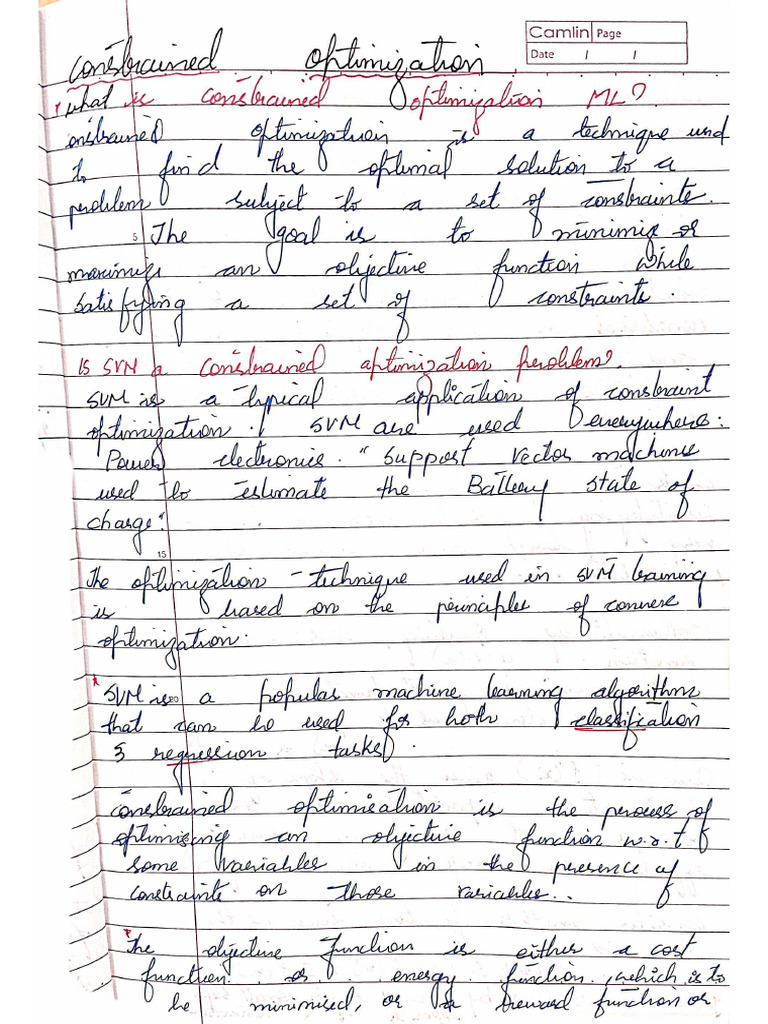 Camlin Page
Date / /
Constrained Optimization
* what is constrained optimization ML?
onstrained optimization is a technique used
to find the optimal solution to a
problem subject to a set of constraints.
5 The goal is to minimize or
maximize an objective function while
satisfying a set of constraints.
Is SVM a constrained optimization problem?
SVM is a typical application of constraint
optimization. SVM are used everywhere:
Power electronics. "Support vector machines
used to estimate the Battery state of
charge".
15
The optimization technique used in SVM learning
is based on the principles of convexe
optimization.
* SVM is 20 a popular machine learning algorithm
that can be used for both classification
& regression tasks.
Constrained optimisation is the process of
optimising an objective function w.r.t
some variables in the presence of
constraints on those variables..
* The objective function is either a cost
function or energy function, which is to
be minimised, or a reward function or